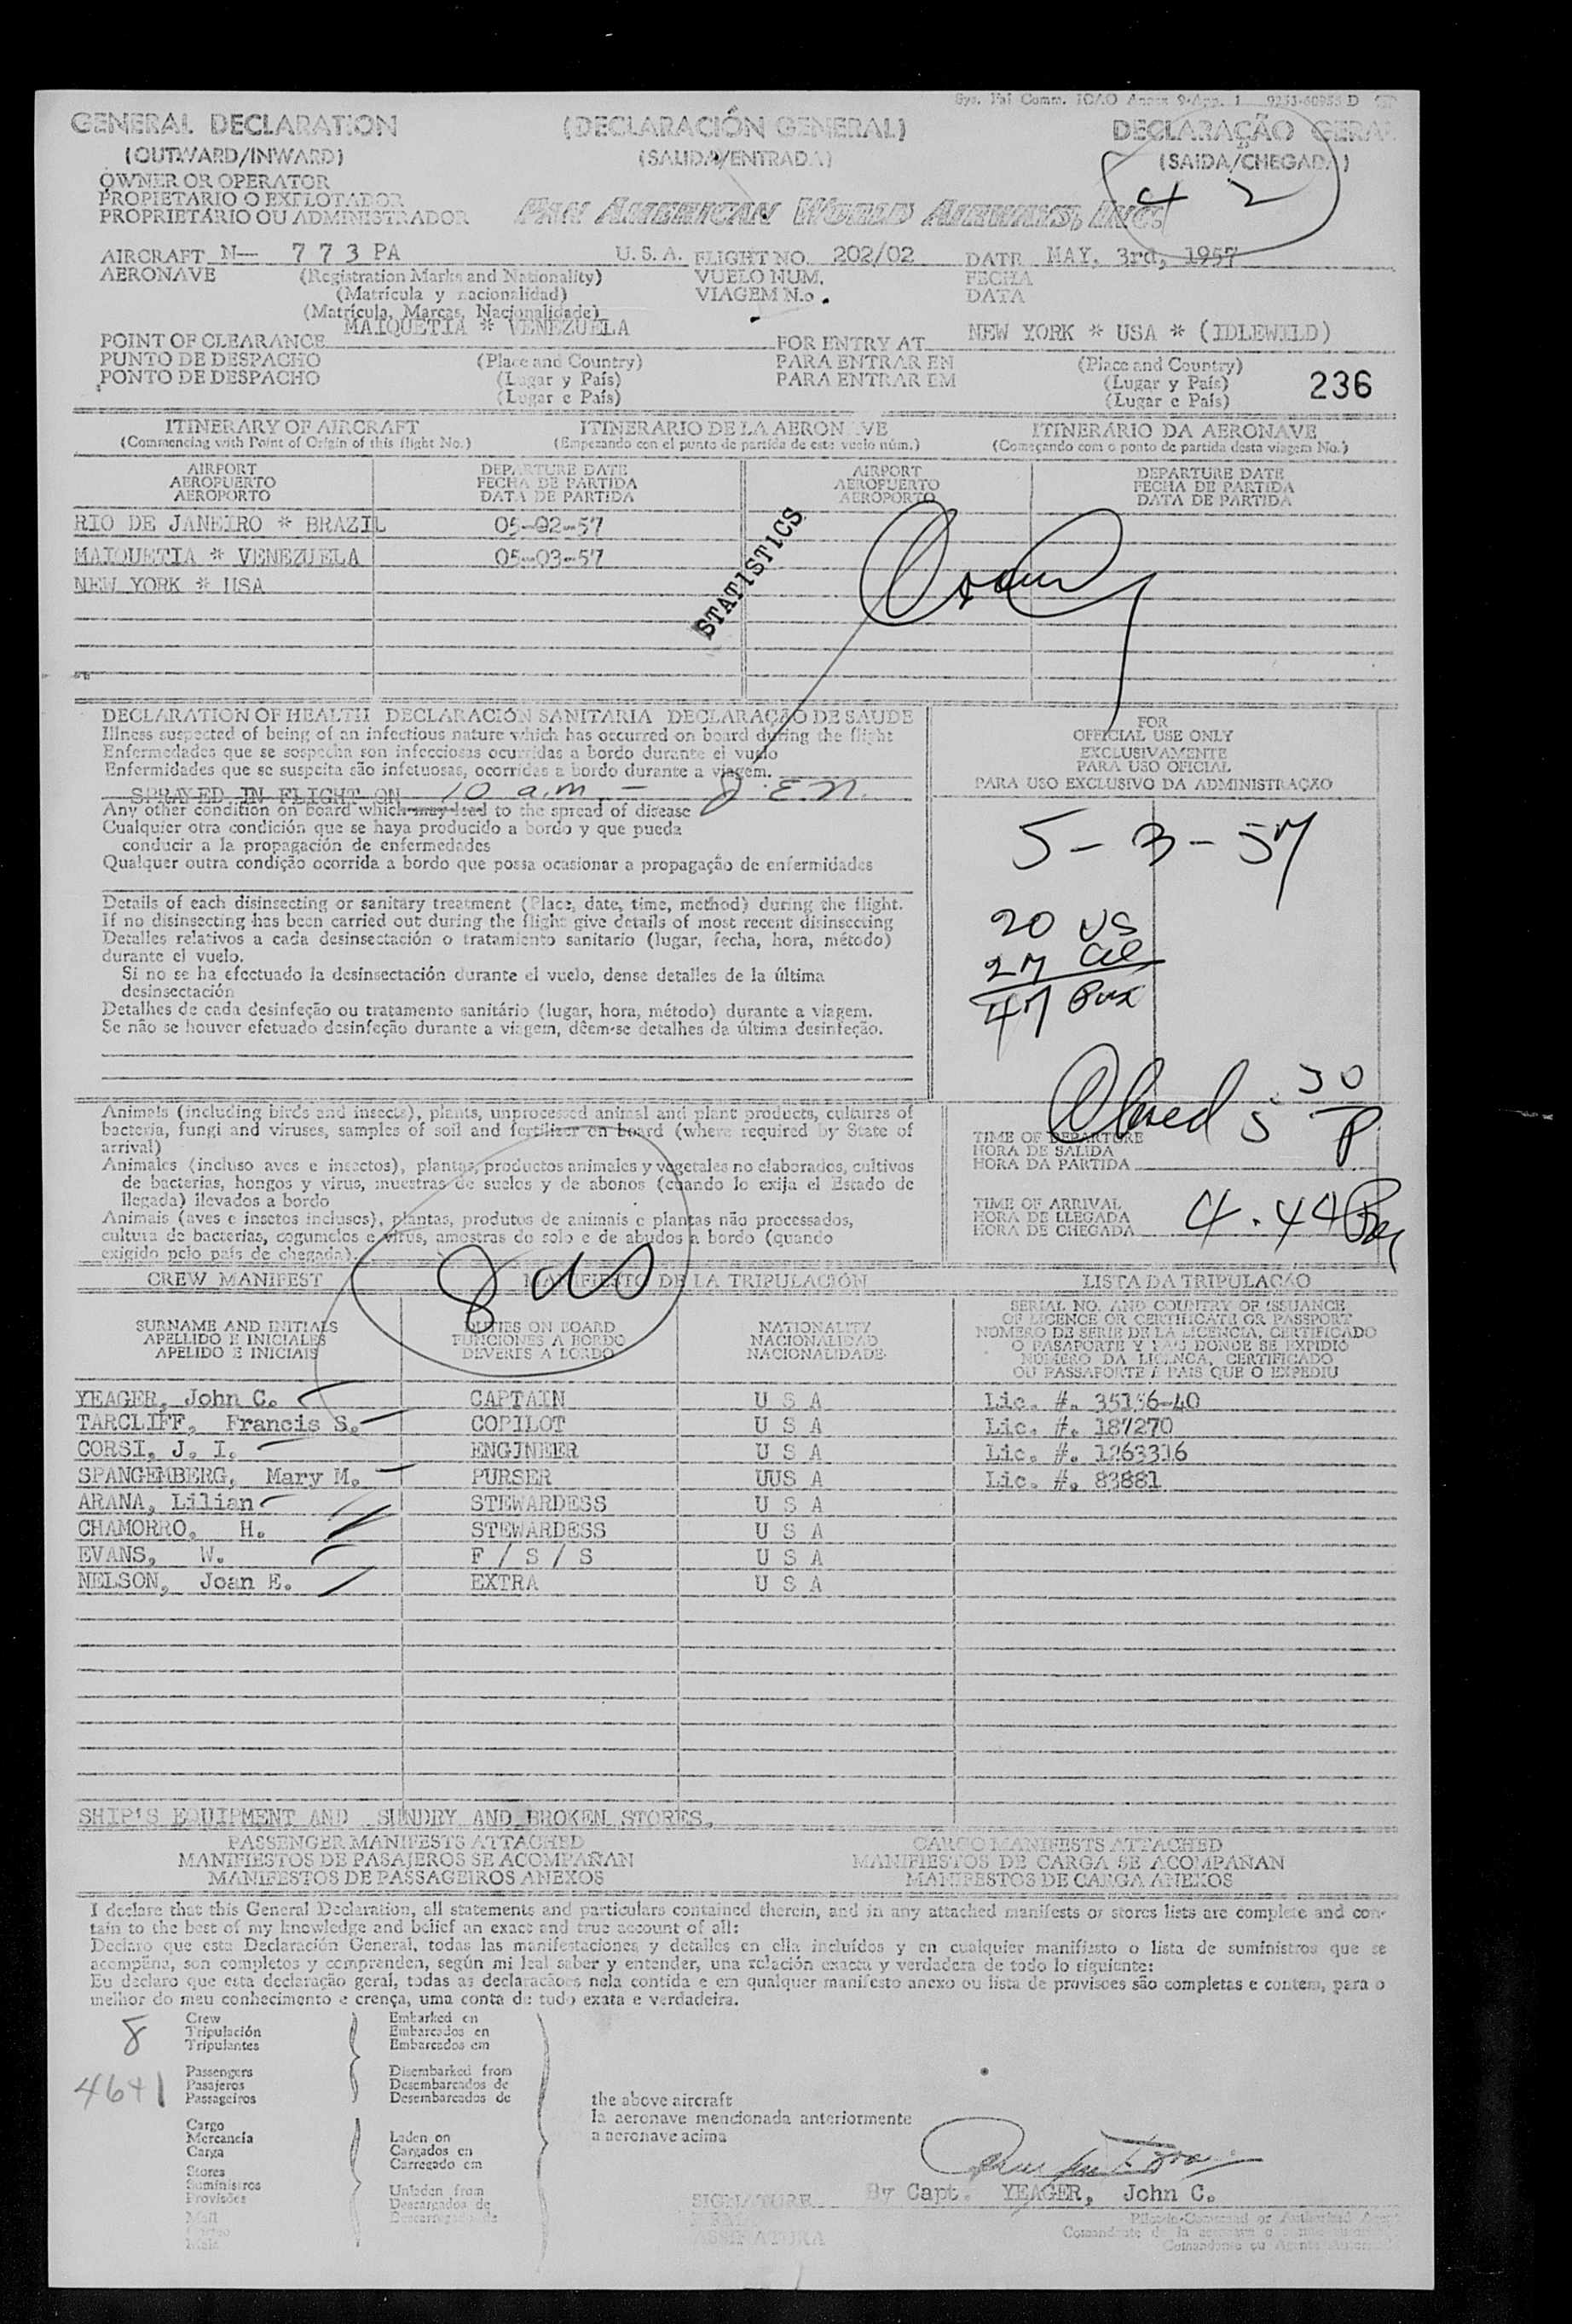 Sys. Pai Comm. ICAO Annex 9-App. 1 9253-60955 D
GENERAL DECLARATION (DECLARACIÓN GENERAL) DECLARAÇÃO GERAL
(OUTWARD/INWARD) (SALIDA/ENTRADA) (SAIDA/CHEGADA)
4 2
OWNER OR OPERATOR
PROPIETARIO O EXPLOTADOR
PROPRIETÁRIO OU ADMINISTRADOR PAN AMERICAN WORLD AIRWAYS, INC.
AIRCRAFT N— 7 7 3 PA U. S. A. FLIGHT NO. 202/02 DATE MAY, 3rd, 1957
AERONAVE (Registration Marks and Nationality) VUELO NUM. FECHA
(Matrícula y nacionalidad) VIAGEM N.o DATA
(Matrícula, Marcas, Nacionalidade)
MAIQUETIA * VENEZUELA NEW YORK * USA * (IDLEWILD)
POINT OF CLEARANCE FOR ENTRY AT
PUNTO DE DESPACHO (Place and Country) PARA ENTRAR EN (Place and Country)
PONTO DE DESPACHO (Lugar y País) PARA ENTRAR EM (Lugar y País)
(Lugar e País) (Lugar e País)
236
ITINERARY OF AIRCRAFT ITINERARIO DE LA AERONAVE ITINERÁRIO DA AERONAVE
(Commencing with Point of Origin of this flight No.) (Empezando con el punto de partida de este vuelo núm.) (Começando com o ponto de partida desta viagem No.)
AIRPORT DEPARTURE DATE AIRPORT DEPARTURE DATE
AEROPUERTO FECHA DE PARTIDA AEROPUERTO FECHA DE PARTIDA
AEROPORTO DATA DE PARTIDA AEROPORTO DATA DE PARTIDA
RIO DE JANEIRO * BRAZIL 05-02-57
MAIQUETIA * VENEZUELA 05-03-57
NEW YORK * USA
STATISTICS
DECLARATION OF HEALTH DECLARACIÓN SANITARIA DECLARAÇÃO DE SAUDE
Illness suspected of being of an infectious nature which has occurred on board during the flight
Enfermedades que se sospecha son infecciosas ocurridas a bordo durante el vuelo
Enfermidades que se suspeita são infetuosas, ocorridas a bordo durante a viagem.
SPRAYED IN FLIGHT ON 10 a.m —
Any other condition on board which may lead to the spread of disease
Cualquier otra condición que se haya producido a bordo y que pueda
conducir a la propagación de enfermedades
Qualquer outra condição ocorrida a bordo que possa ocasionar a propagação de enfermidades
Details of each disinsecting or sanitary treatment (Place, date, time, method) during the flight.
If no disinsecting has been carried out during the flight give details of most recent disinsecting
Detalles relativos a cada desinsectación o tratamiento sanitario (lugar, fecha, hora, método)
durante el vuelo.
Si no se ha efectuado la desinsectación durante el vuelo, dense detalles de la última
desinsectación
Detalhes de cada desinfeção ou tratamento sanitário (lugar, hora, método) durante a viagem.
Se não se houver efetuado desinfeção durante a viagem, dêem-se detalhes da última desinfeção.
FOR
OFFICIAL USE ONLY
EXCLUSIVAMENTE
PARA USO OFICIAL
PARA USO EXCLUSIVO DA ADMINISTRAÇÃO
5 - 3 - 57
20 US
27
47
Closed 5 30 P
Animals (including birds and insects), plants, unprocessed animal and plant products, cultures of
bacteria, fungi and viruses, samples of soil and fertilizer on board (where required by State of
arrival)
Animales (incluso aves e insectos), plantas, productos animales y vegetales no elaborados, cultivos
de bacterias, hongos y virus, muestras de suelos y de abonos (cuando lo exija el Estado de
llegada) llevados a bordo
Animais (aves e insetos inclusos), plantas, produtos de animais e plantas não processados,
cultura de bacterias, cogumelos e virus, amostras do solo e de abudos a bordo (quando
exigido pelo país de chegada).
TIME OF DEPARTURE
HORA DE SALIDA
HORA DA PARTIDA
TIME OF ARRIVAL
HORA DE LLEGADA
HORA DE CHEGADA 4.44
CREW MANIFEST MANIFIESTO DE LA TRIPULACIÓN LISTA DA TRIPULAÇÃO
8
SURNAME AND INITIALS DUTIES ON BOARD NATIONALITY SERIAL NO. AND COUNTRY OF ISSUANCE
APELLIDO E INICIALES FUNCIONES A BORDO NACIONALIDAD OF LICENCE OR CERTIFICATE OR PASSPORT
APELIDO E INICIAIS DEVERES A BORDO NACIONALIDADE NÚMERO DE SERIE DE LA LICENCIA, CERTIFICADO
O PASAPORTE Y PAIS DONDE SE EXPIDIÓ
NÚMERO DA LICENÇA, CERTIFICADO
OU PASSAPORTE E PAIS QUE O EXPEDIU
YEAGER, John C. CAPTAIN U S A Lic. #. 35156-40
TARCLIFF, Francis S. COPILOT U S A Lic. #. 187270
CORSI, J. I. ENGINEER U S A Lic. #. 1263316
SPANGEMBERG, Mary M. PURSER UUS A Lic. #. 83881
ARANA, Lilian STEWARDESS U S A
CHAMORRO, H. STEWARDESS U S A
EVANS, W. F / S / S U S A
NELSON, Joan E. EXTRA U S A
SHIP'S EQUIPMENT AND SUNDRY AND BROKEN STORES.
PASSENGER MANIFESTS ATTACHED CARGO MANIFESTS ATTACHED
MANIFIESTOS DE PASAJEROS SE ACOMPAÑAN MANIFIESTOS DE CARGA SE ACOMPAÑAN
MANIFESTOS DE PASSAGEIROS ANEXOS MANIFESTOS DE CARGA ANEXOS
I declare that this General Declaration, all statements and particulars contained therein, and in any attached manifests or stores lists are complete and con-
tain to the best of my knowledge and belief an exact and true account of all:
Declaro que esta Declaración General, todas las manifestaciones y detalles en ella incluídos y en cualquier manifiesto o lista de suministros que se
acompaña, son completos y comprenden, según mi leal saber y entender, una relación exacta y verdadera de todo lo siguiente:
Eu declaro que esta declaração geral, todas as declaracãoes nela contida e em qualquer manifesto anexo ou lista de provisoes são completas e contem, para o
melhor do meu conhecimento e crença, uma conta de tudo exata e verdadeira.
8 Crew Embarked on
Tripulación Embarcados en
Tripulantes Embarcados em
46+1 Passengers Disembarked from
Pasajeros Desembarcados de
Passageiros Desembarcados de
the above aircraft
la aeronave mencionada anteriormente
a aeronave acima
Cargo Laden on
Mercancía Cargados en
Carga Carregado em
Stores Unladen from
Suministros Descargados de
Provisões Descarregado de
Mail
Correo
Mala
SIGNATURE By Capt. YEAGER, John C.
FIRMA
ASSINATURA
Pilot-in-Command or Authorized Agent
Comandante de la aeronave o
Comandante ou Agente